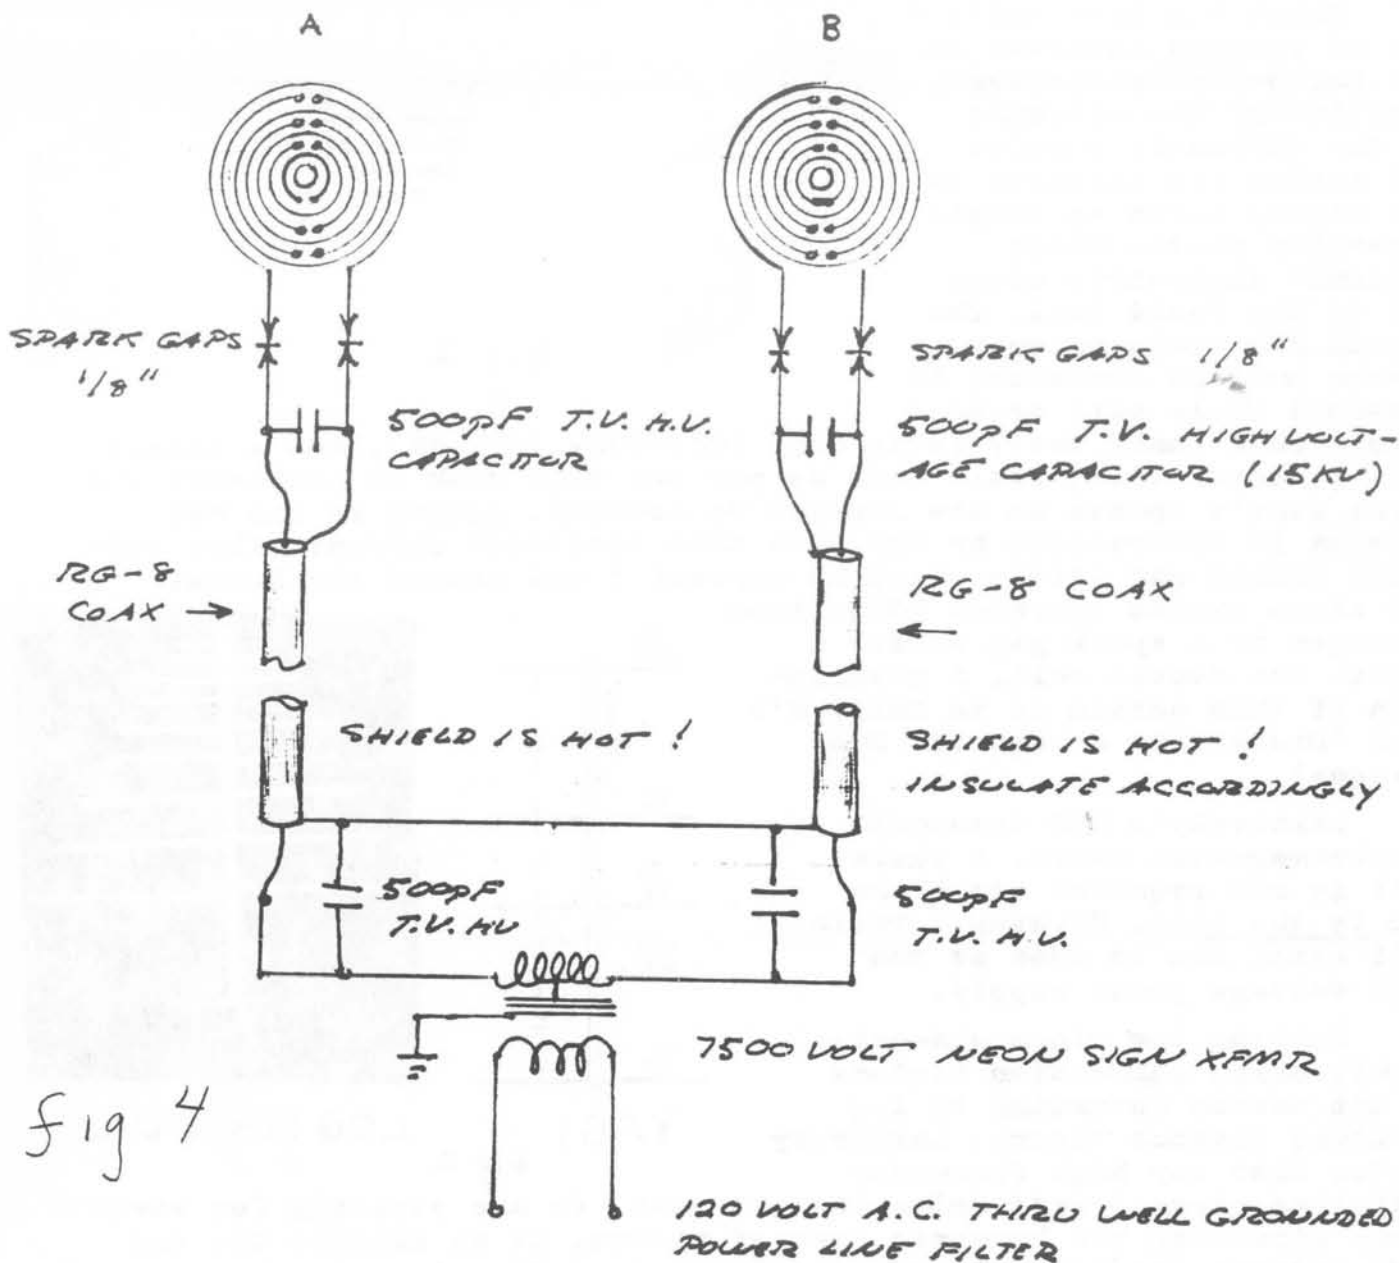 A
B
SPARK GAPS
1/8"
SPARK GAPS 1/8"
500pF T.V. H.V.
CAPACITOR
500pF T.V. HIGH VOLT-
AGE CAPACITOR (15KV)
RG-8
COAX
RG-8 COAX
SHIELD IS HOT !
SHIELD IS HOT !
INSULATE ACCORDINGLY
500pF
T.V. HV
500pF
T.V. H.V.
7500 VOLT NEON SIGN XFMR
fig 4
120 VOLT A.C. THRU WELL GROUNDED
POWER LINE FILTER